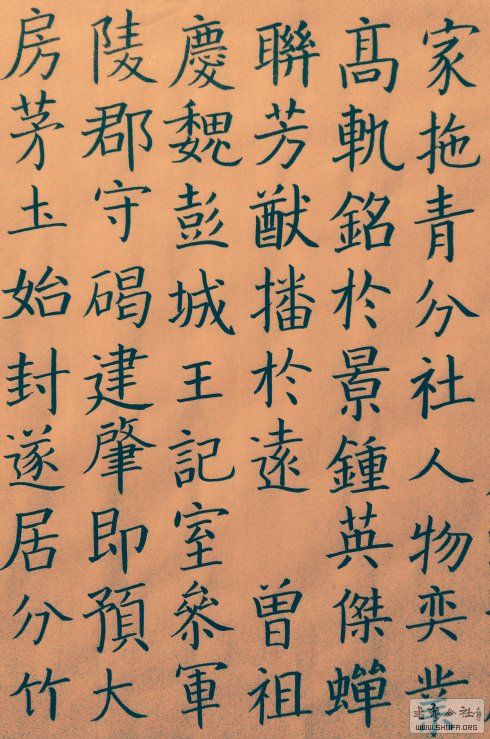 家拖青分社人物奕業
髙軌銘於景鍾英傑蟬
聯芳猷播於遠 曾祖
慶魏彭城王記室參軍
陵郡守碣建肇即預大
房茅土始封遂居分竹
WWW.SHUFA.ORG